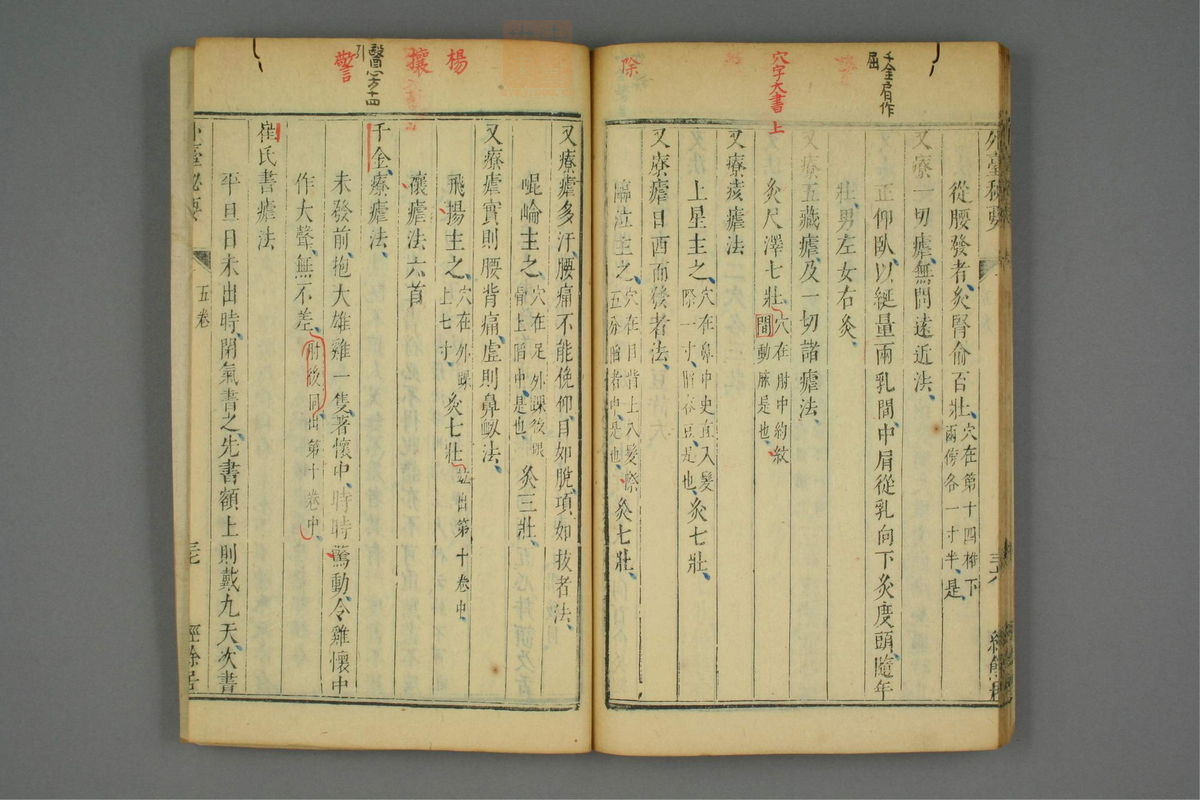 千金肩作
屈
穴字大書
上
除
外臺秘要
從腰發者灸腎俞百壯穴在第十四椎下兩傍各一寸半是
又療一切瘧無問遠近法
正仰臥以綖量兩乳間中屈從乳向下灸度頭隨年
壯男左女右灸
又療五藏瘧及一切諸瘧法
灸尺澤七壯穴在肘中約紋間動脉是也
又療痎瘧法
上星主之穴在鼻中史直入髮際一寸陷容豆是也灸七壯
又療瘧日西而發者法
臨泣主之穴在目眥上入髮際五分陷者中是也灸七壯
楊
攘
醫心方十四
引
警
又療瘧多汗腰痛不能俛仰目如脫項如拔者法
崐崘主之穴在足外踝後跟骨上陷中是也灸三壯
又療瘧實則腰背痛虛則鼻衂法
飛揚主之穴在外踝上七寸灸七壯並出第十卷中
禳瘧法六首
千金療瘧法
未發前抱大雄雞一隻著懷中時時驚動令雞懷中
作大聲無不差肘後同出第十卷中
崔氏書瘧法
平旦日未出時閉氣書之先書額上則戴九天次書
外臺秘要
五卷
經餘居